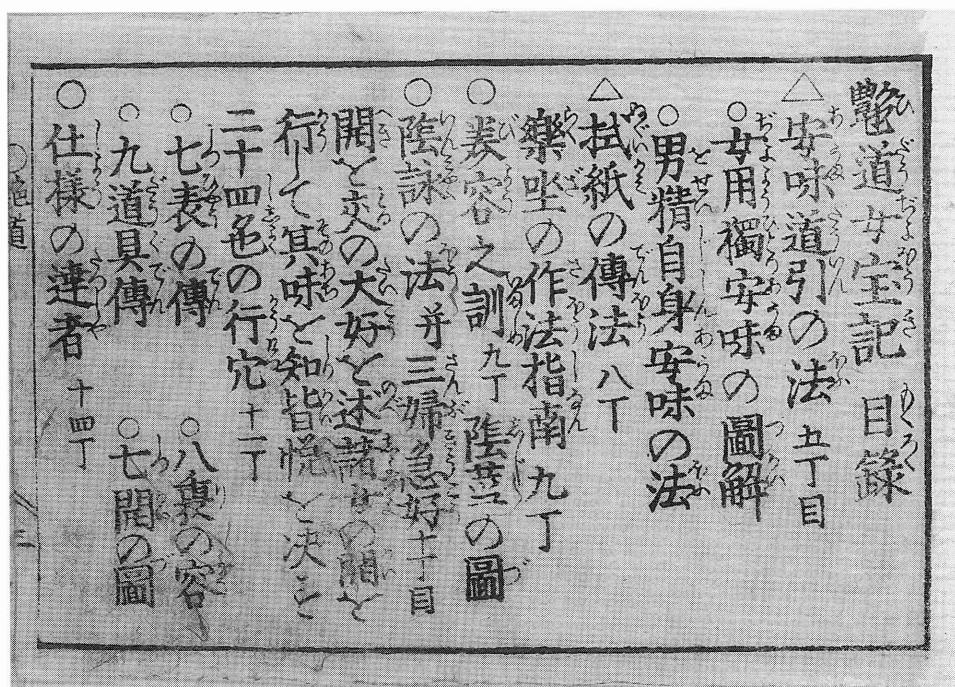 艶道女宝記 目録
△安味道引の法 五丁目
○女用獨安味の圖解
○男精自身安味の法
△拭紙の傳法 八丁
樂坐の作法指南 九丁
○美容之訓 九丁 陰莖の圖
○陰詠の法并三婦急好 十丁目
開と交の大好と述諸の開を
行して其味を知皆悦を决す
二十四色の行穴 十二丁
○七表の傳 ○八裏の容
○九道具傳 ○七開の圖
○仕様の達者 十四丁
○艶道 三